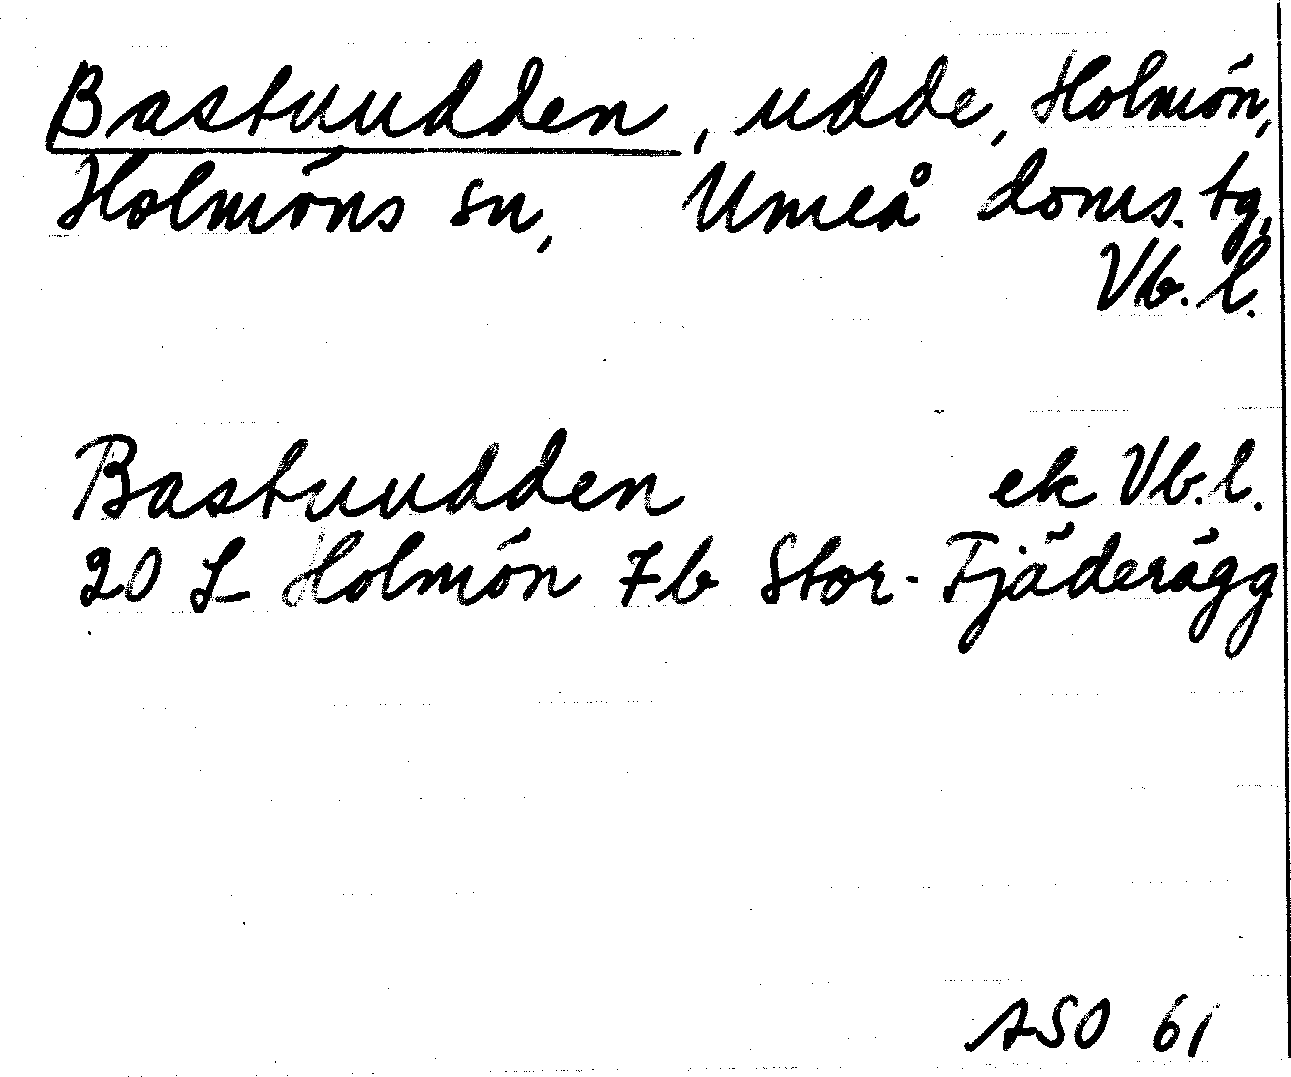 Bastuudden, udde, Holmön,
Holmöns sn, Umeå doms. tg,
Vb. l.
Bastuudden ek Vb. l.
20 L Holmön 7b Stor-Fjäderägg
ASO 61